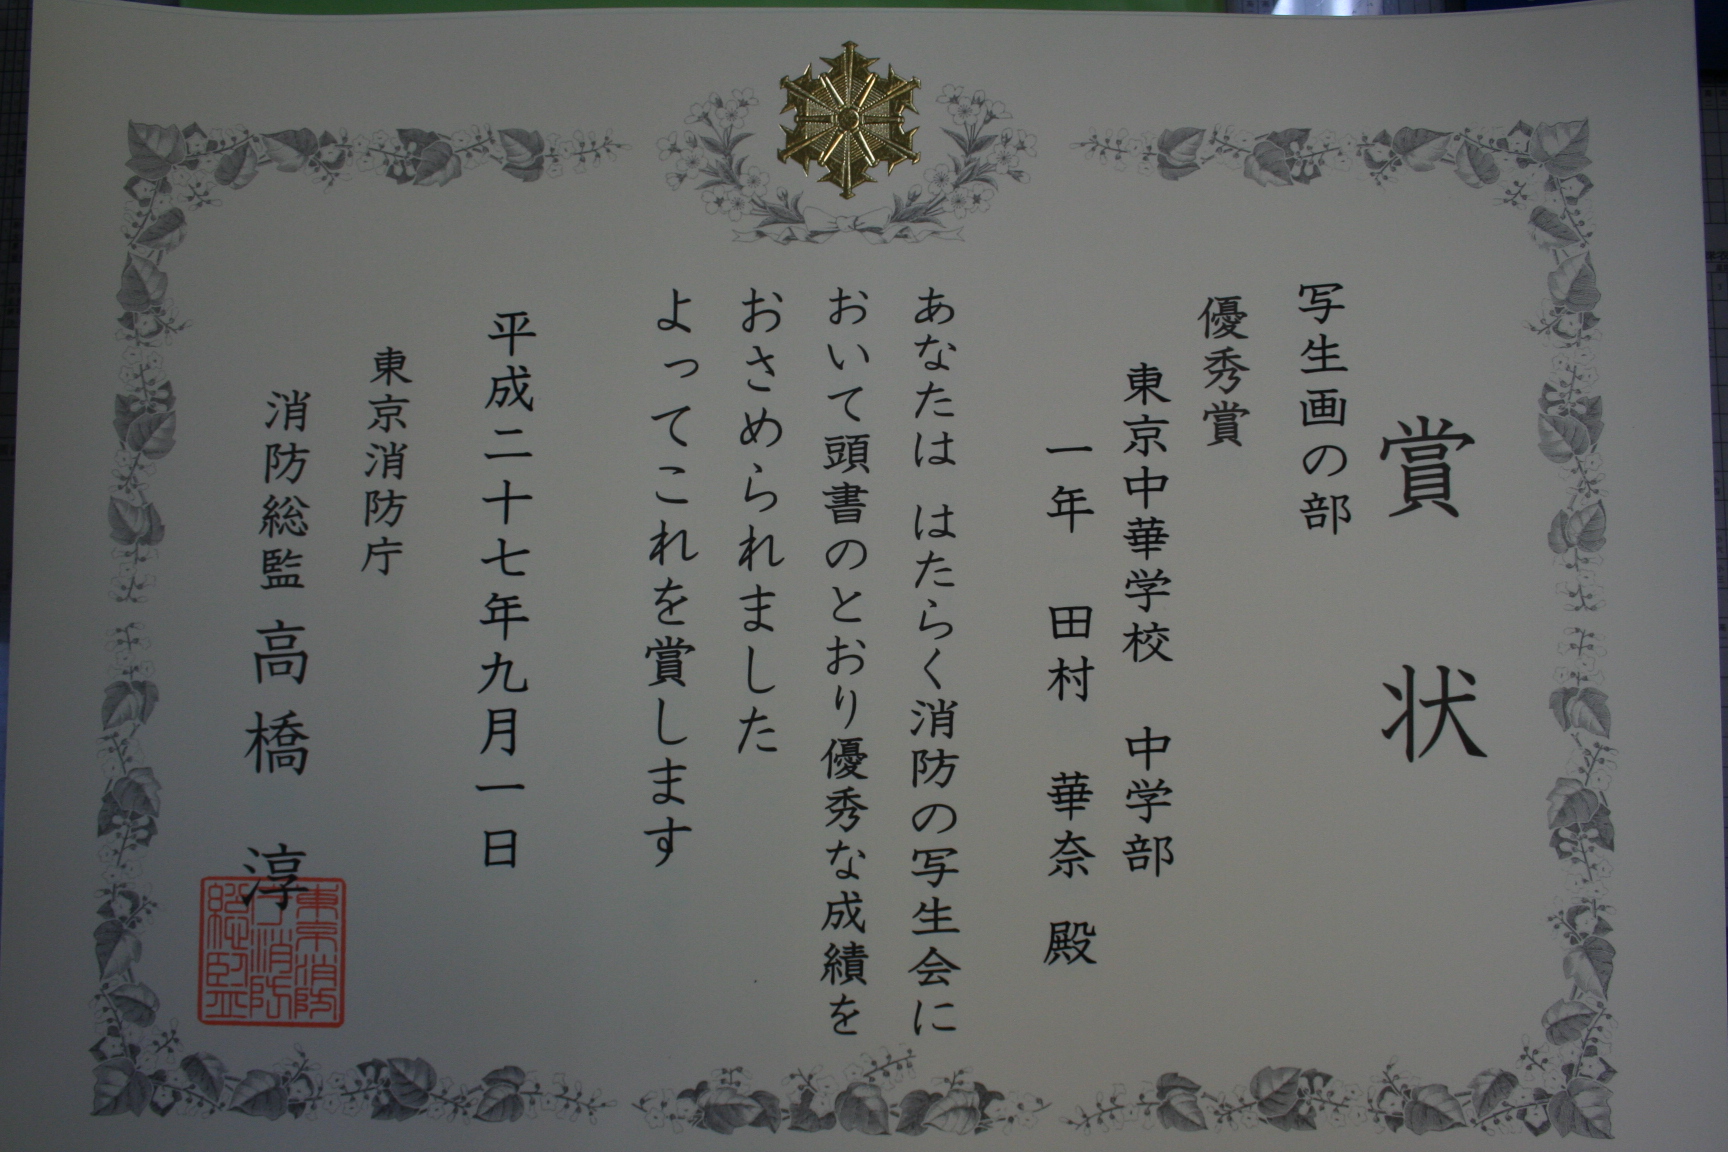 賞状
写生画の部
優秀賞
東京中華学校 中学部
一年 田村 華奈 殿
あなたは はたらく消防の写生会に
おいて頭書のとおり優秀な成績を
おさめられました
よってこれを賞します
平成二十七年九月一日
東京消防庁
消防総監 高橋 淳
東京消防
庁消防
総監